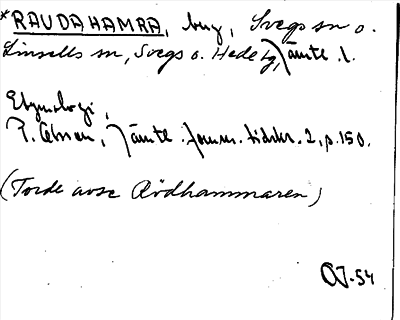 *RAUDAHAMRA, berg, Svegs sn o.
Linsells sn, Svegs o. Hede tg, Jämtl. l.
Etymologi,
P. Olsson, Jämtl. fornm. tidskr. 2, p. 150.
(Torde avse Rödhammaren)
OJ-54